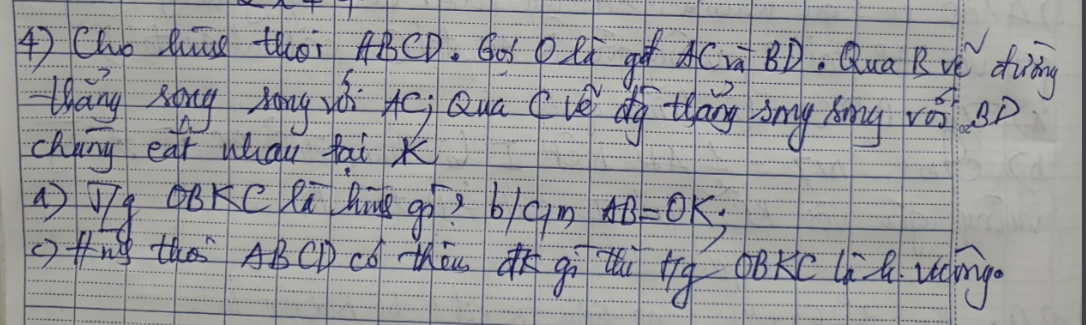 4) Cho hình thoi ABCD. Gọi O là gđ AC và BD. Qua B vẽ đường
thẳng song song với AC; Qua C vẽ đg thẳng song song với BD
chúng cắt nhau tại K
a) T/g OBKC là hình gì? b/ C/m AB=OK;
c) Hng thoi ABCD có thêm đk gì thì t/g OBKC là h. vuông.